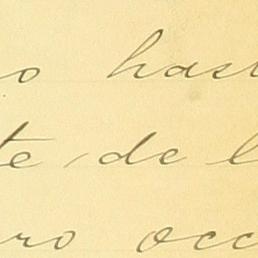 o hast
te de l
ro occ